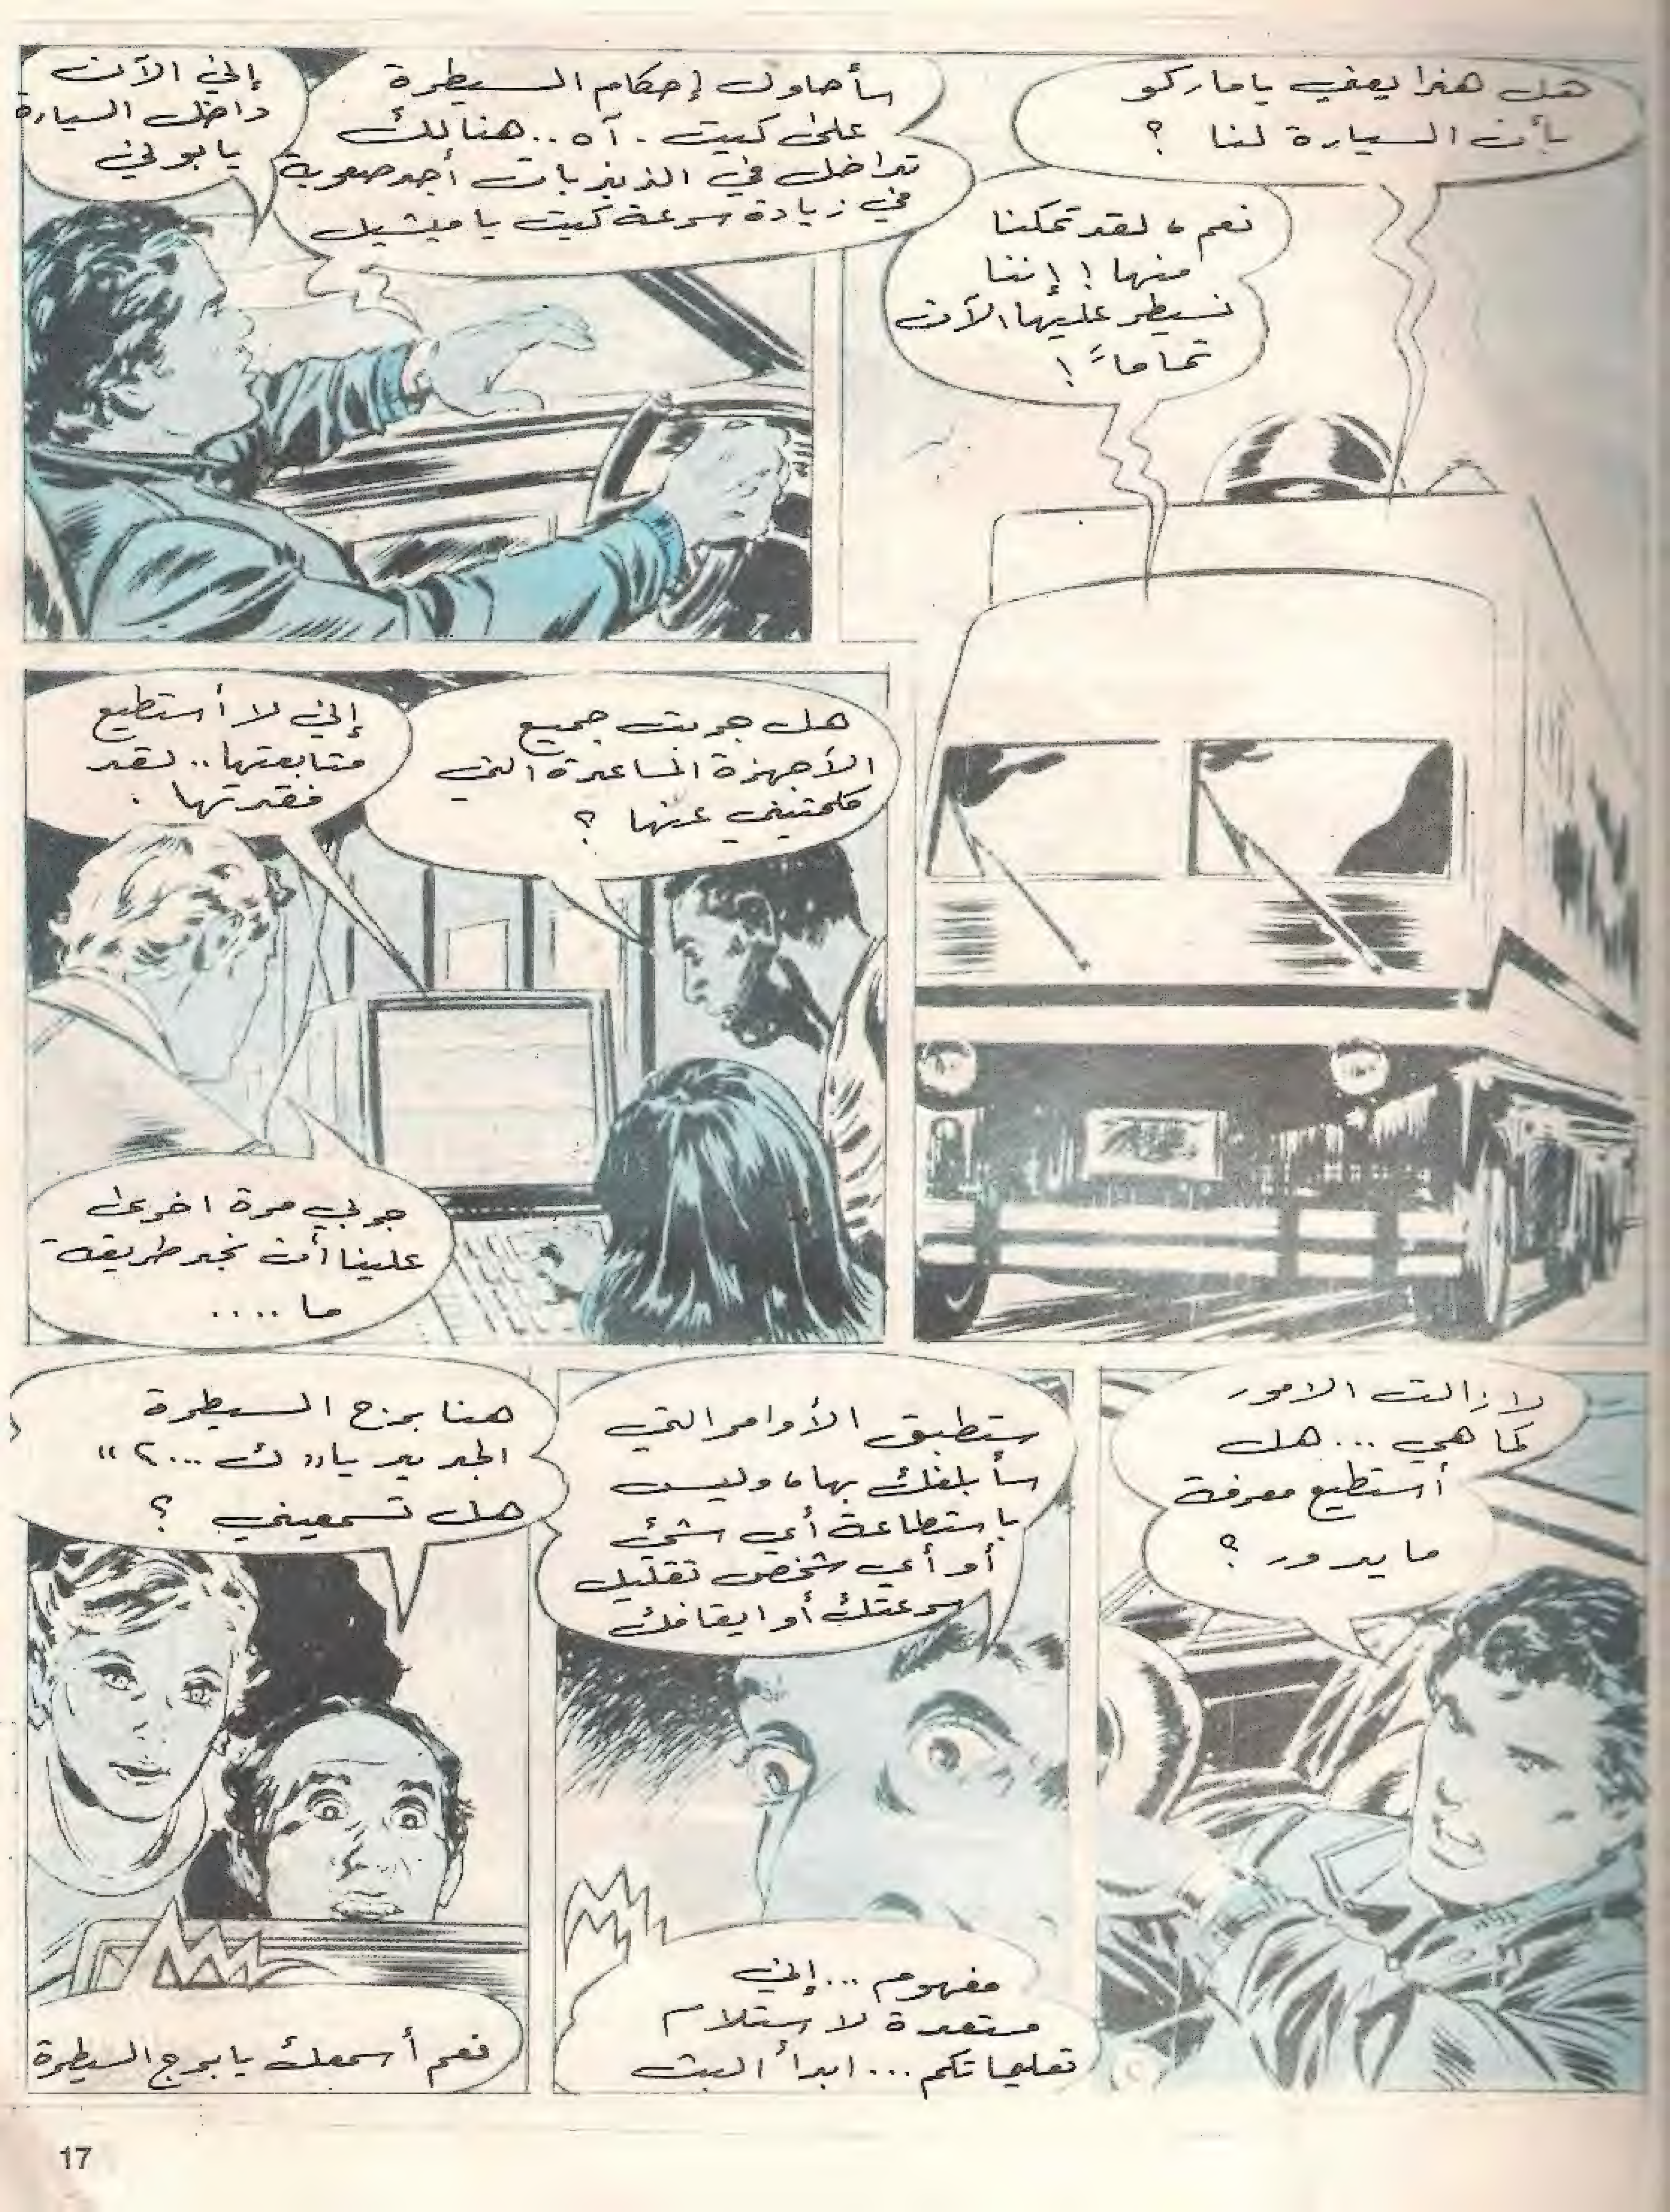 هل هذا يعني يا ماركو
بأن السيارة لنا ؟
نعم ، لقد تمكنا
منها ! إننا
نسيطر عليها الآن
تماماً !
سأحاول إحكام السيطرة
على كيت . آه .. هنالك
تداخل في الذبذبات أجد صعوبة
في زيادة سرعة كيت يا ميشيل
إني الآن
داخل السيارة
يا بوني
هل جربت جميع
الأجهزة المساعدة التي
كلمتيني عنها ؟
إني لا أستطيع
متابعتها .. لقد
فقدتها .
جربي مرة اخرى
علينا أن نجد طريقة
ما ....
لا زالت الامور
كما هي ... هل
أستطيع معرفة
ما يدور ؟
ستطبق الأوامر التي
سأبلغك بها ، وليس
باستطاعة أي شئ
أو أي شخص تقليل
سرعتك أو ايقافك
مفهوم ... إني
مستعدة لاستلام
تعليماتكم ... ابدأ البث
هنا برج السيطرة
الجديد يا " ك ...٢ "
هل تسمعيني ؟
نعم أسمعك يا برج السيطرة
17